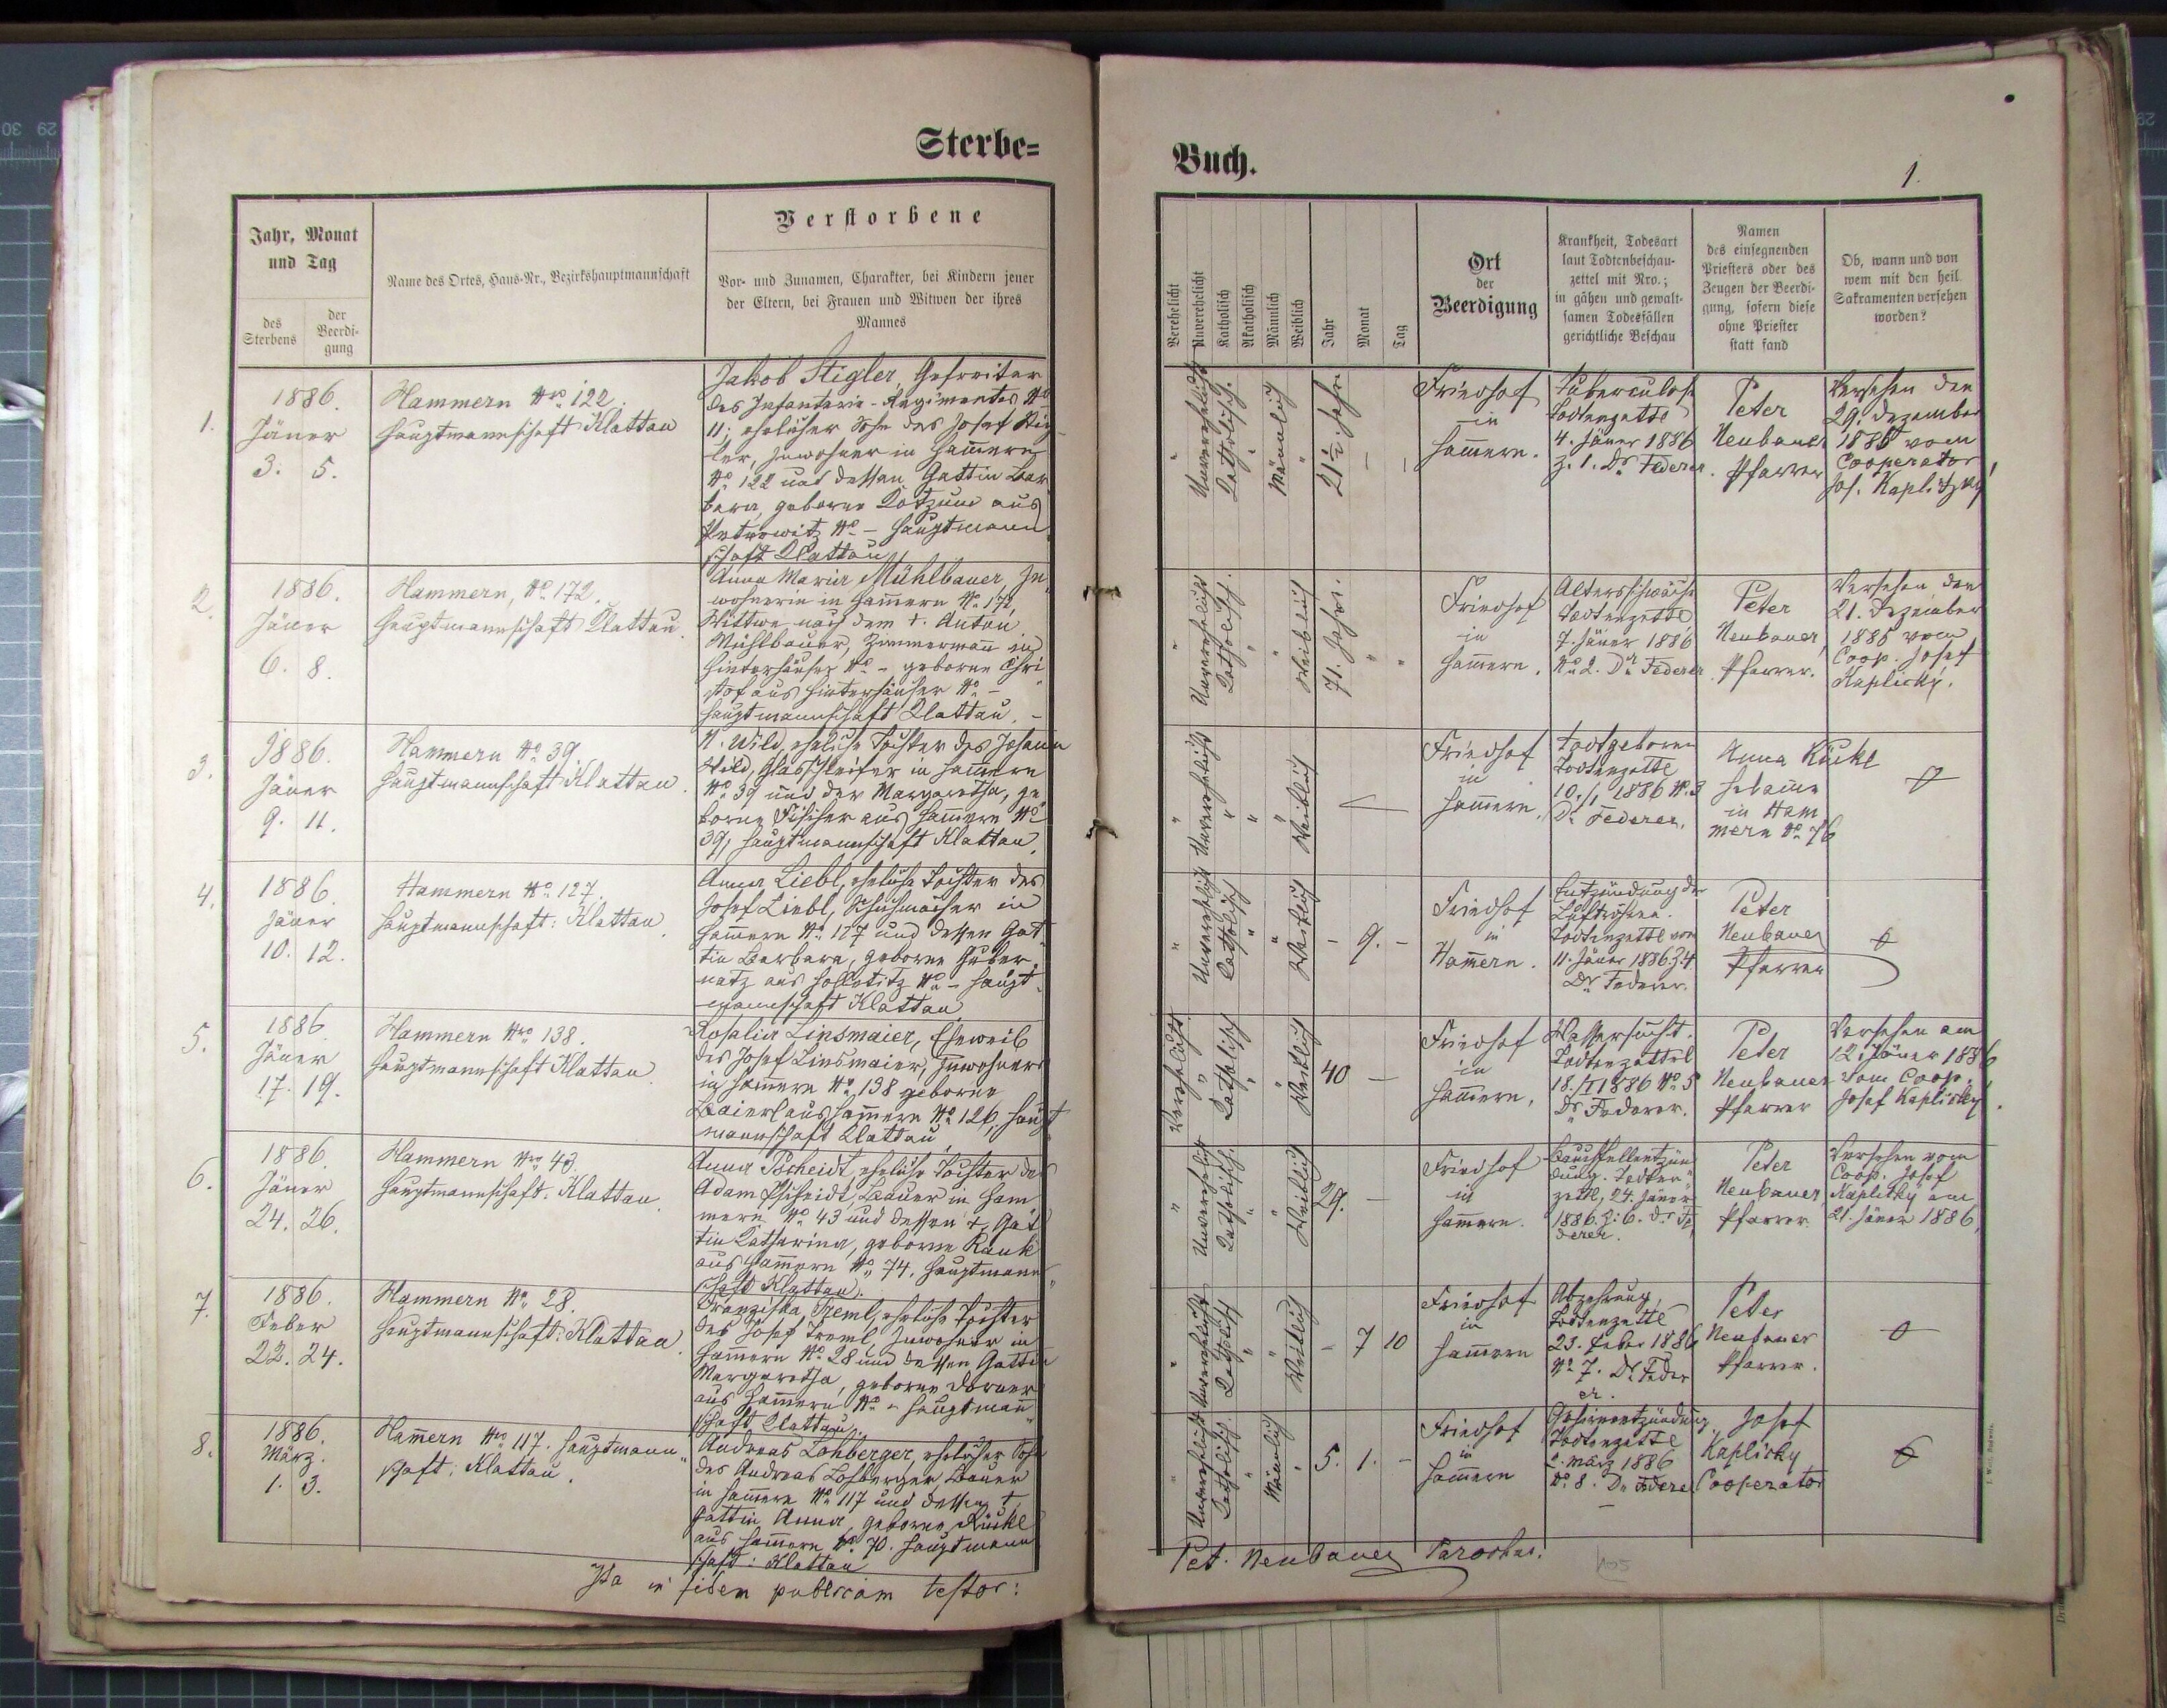 Sterbe=
Jahr, Monat
und Tag
des
Sterbens
der
Beerdi-
gung
Name des Ortes, Haus-Nr., Bezirkshauptmannschaft
Verstorbene
Vor- und Zunamen, Charakter, bei Kindern jener
der Eltern, bei Frauen und Witwen der ihres
Mannes
1.
1886.
Jäner
3. 5.
Hammern Nro 122.
Hauptmannschaft Klattau
Jakob Stigler, Gefreiter
des Infanterie-Regimentes No
11; ehelicher Sohn des Josef Stig-
ler, Inwohner in Hammern
No 122 und dessen Gattin Bar
bara, geborne Kotzum aus
Petrowitz No – Hauptmann
schaft Klattau
2.
1886.
Jäner
6. 8.
Hammern, No 172.
Hauptmannschaft Klattau.
Anna Maria Mühlbauer, In
wohnerin in Hammern No 172,
Wittwe nach dem †. Anton
Mühlbauer, Zimmermann in
Hinterhäuser No – geborne Chri
stof aus Hinterhäuser No –
Hauptmannschaft Klattau. –
3.
1886.
Jäner
9. 11.
Hammern No 39.
Hauptmannschaft Klattau.
N. Wild, eheliche Tochter des Johann
Wild, Glasschleifer in Hammern
No 39 und der Margaretha, ge
borne Fischer aus Hammern No
39, Hauptmannschaft Klattau.
4.
1886.
Jäner
10. 12.
Hammern No 127.
Hauptmannschaft: Klattau.
Anna Liebl, eheliche Tochter des
Josef Liebl, Schuhmacher in
Hammern No 127 und dessen Gat
tin Barbara, geborne Guber
natz aus No – Haupt
mannschaft Klattau
5.
1886
Jäner
17. 19.
Hammern Nro 138.
Hauptmannschaft Klattau.
Rosalia Linsmaier, Eheweib
des Josef Linsmaier, Inwohners
in Hammern No 138 geborne
Baierl aus Hammern No 126, Haupt
mannschaft Klattau
6.
1886.
Jäner
24. 26.
Hammern Nro 43.
Hauptmannschaft: Klattau.
Anna Pscheidt, eheliche Tochter des
Adam Pscheidt, Bauer in Ham
mern No 43 und dessen †. Gat
tin Katharina, geborne Rank
aus Hammern No 74, Hauptmann
schaft Klattau.
7.
1886.
Feber
22. 24.
Hammern No 28.
Hauptmannschaft: Klattau.
Franziska Treml, eheliche Tochter
des Josef Treml, Inwohner in
Hammern No 28 und dessen Gattin
Margaretha, geborne Dorner
aus Hammern No – Hauptmann
schaft Klattau.
8.
1886.
März.
1. 3.
Hammern Nro 117. Hauptmann
schaft: Klattau.
Andreas Lohberger, ehelicher Sohn
des Andreas Lohberger, Bauer
in Hammern No 117 und dessen †
Gattin Anna geborne Rückl
aus Hammern No 70. Hauptmann
schaft: Klattau
Ita in fidem publicam testor:
Buch.
1.
Verehelicht
Unverehelicht
Katholisch
Akatholisch
Männlich
Weiblich
Jahr
Monat
Tag
Ort
der
Beerdigung
Krankheit, Todesart
laut Todtenbeschau-
zettel mit Nro.;
in gähen und gewalt-
samen Todesfällen
gerichtliche Beschau
Namen
des einsegnenden
Priesters oder des
Zeugen der Beerdi-
gung, sofern diese
ohne Priester
statt fand
Ob, wann und von
wem mit den heil.
Sakramenten versehen
worden?
Unverehelicht
Katholisch.
Männlich
21 1/2 Jahr
Friedhof
in
Hammern.
Tuberculose
Todtenzettel
4. Jäner 1886
Z. 1. Dr Federer.
Peter
Neubauer
Pfarrer
Versehen den
29. Dezember
1885 vom
Cooperator
Jos. Kaplitzky
Unverehelicht
Katholisch.
Weiblich
71. Jahre.
Friedhof
in
Hammern.
Altersschwäche
Todtenzettel
7. Jäner 1886
No 2. Dr Federer.
Peter
Neubauer,
Pfarrer.
Versehen den
21. Dezember
1885 vom
Coop. Josef
Kaplicky.
Unverehelicht
Weiblich
Friedhof
in
Hammern.
Todtgeboren
Todtenzettel
10./1 1886 No. 3
Dr Federer.
Anna Rückl
Hebamme
in Ham
mern No 76
Unverehelicht
Katholisch
Weiblich
– 9. –
Friedhof
in
Hammern.
Entzündung der
Luftröhren.
Todtenzettel vom
11. Jäner 1886. Z. 4
Dr Federer.
Peter
Neubauer
Pfarrer
Verehelicht
Katholisch
Weiblich
40 –
Friedhof
in
Hammern.
Wassersucht.
Todtenzettel
18./I 1886 No 5
Dr Federer.
Peter
Neubauer
Pfarrer
Versehen am
12. Jäner 1886
vom Coop.
Josef Kaplicky.
Unverehelicht
Katholisch.
Weiblich
29. –
Friedhof
in
Hammern.
Bauchfellentzün
dung. Todten
zettel, 24. Jäner
1886. Z: 6. Dr Fe
derer.
Peter
Neubauer
Pfarrer.
Versehen vom
Coop. Josef
Kaplitky am
21. Jäner 1886.
Unverehelicht
Katholisch
Weiblich
– 7 10
Friedhof
in
Hammern
Abzehrung,
Todtenzettel
23. Feber 1886
No 7. Dr Feder
er.
Peter
Neubauer
Pfarrer.
Unverehelicht
Katholisch.
Männlich
5. 1. –
Friedhof
in
Hammern
Gehirnentzündung
Todtenzettel
2. März 1886
No. 8. Dr Federer
Josef
Kaplicky
Cooperator
Pet. Neubauer Parochus.